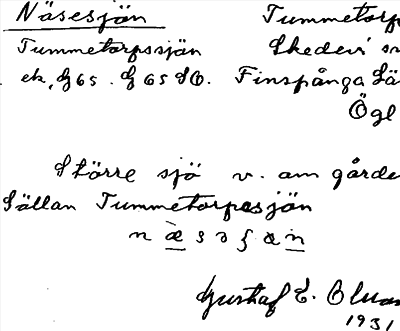 Näsesjön Tummetorp
Tummetorpssjön Skedevi sn
ek. G65. G65 SO. Finspånga lä
Ögl
Större sjö v. om gårde
Sällan Tummetorpssjön
Gustaf E. Olsson
1931